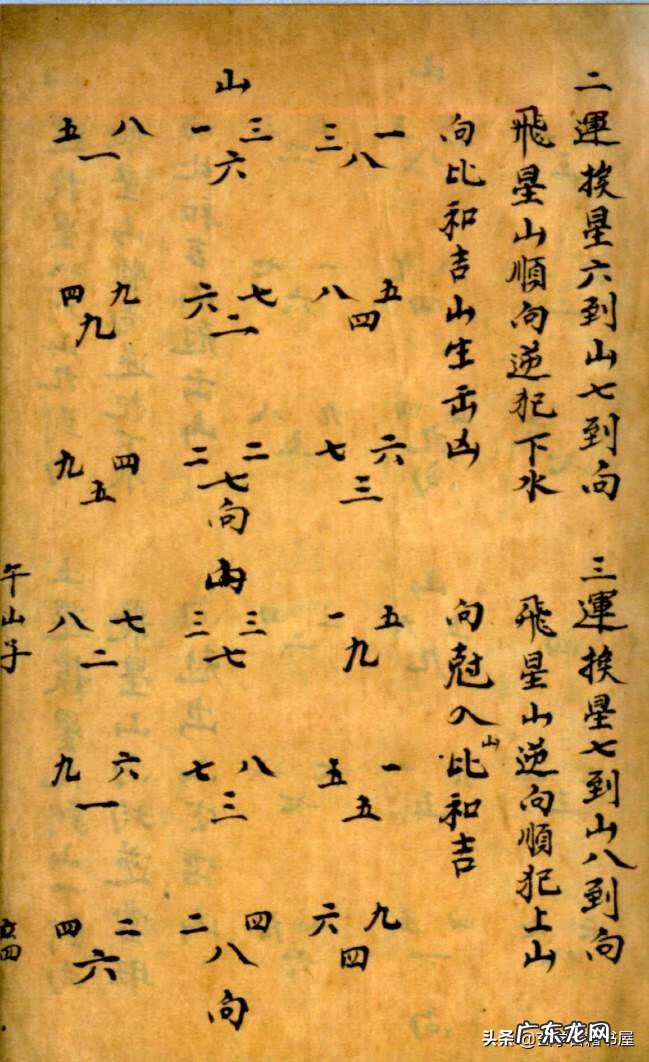 二運挨星六到山七到向
飛星山順向逆犯下水
向比和吉山生出凶
山
五八 一三 三一
一 六 八
四九 六七 八五
九 二 四
九四 二二 七六
五 七 三
向
三運挨星七到山八到向
飛星山逆向順犯上山
向尅入山比和吉
山
八七 三三 一五
二 七 九
九六 七八 五一
一 三 五
四二 二四 六九
六 八 四
向
午山子
广东龙网
头条
书屋